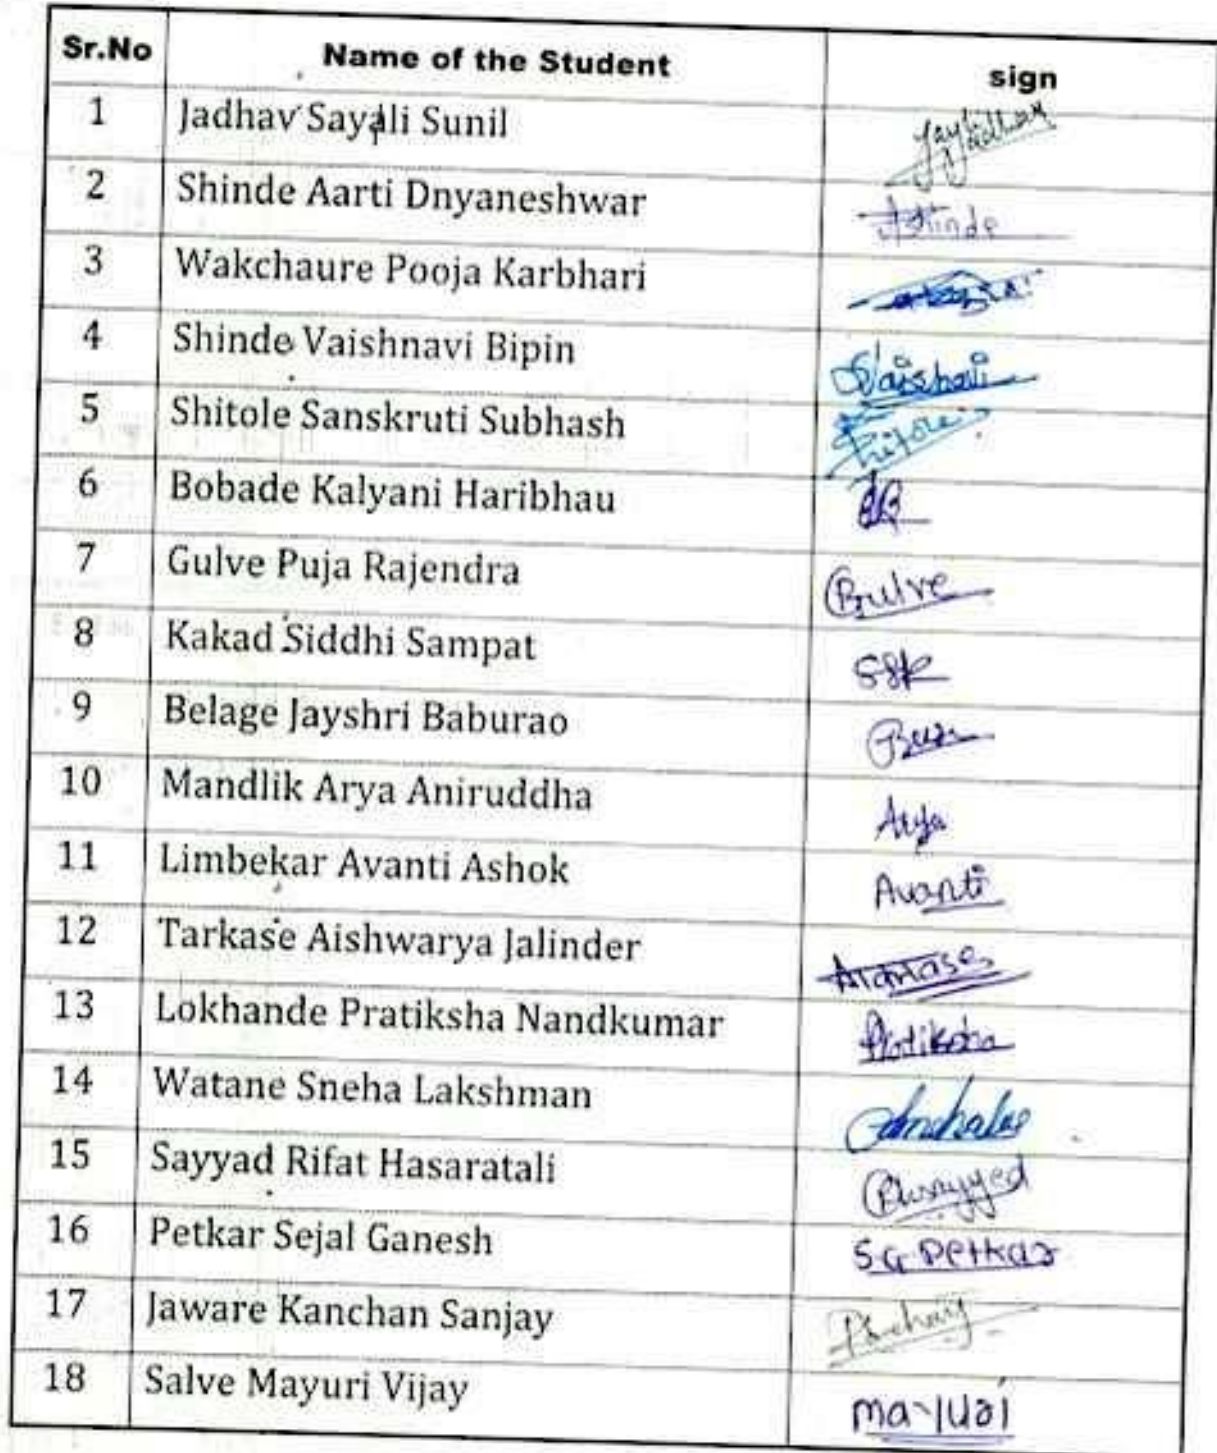 Sr.No Name of the Student sign
1 Jadhav Sayali Sunil
2 Shinde Aarti Dnyaneshwar AShinde
3 Wakchaure Pooja Karbhari
4 Shinde Vaishnavi Bipin
5 Shitole Sanskruti Subhash
6 Bobade Kalyani Haribhau
7 Gulve Puja Rajendra Gulve
8 Kakad Siddhi Sampat SSK
9 Belage Jayshri Baburao
10 Mandlik Arya Aniruddha Arya
11 Limbekar Avanti Ashok Avanti
12 Tarkase Aishwarya Jalinder
13 Lokhande Pratiksha Nandkumar Pratiksha
14 Watane Sneha Lakshman
15 Sayyad Rifat Hasaratali
16 Petkar Sejal Ganesh SG Petkar
17 Jaware Kanchan Sanjay
18 Salve Mayuri Vijay mayuri